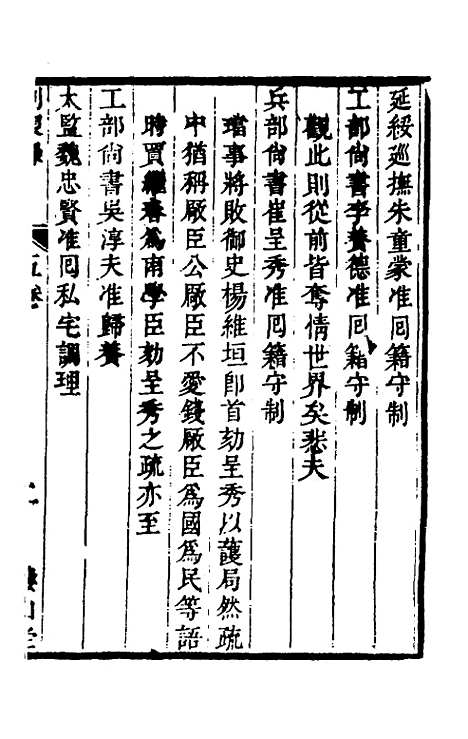 延綏巡撫朱童蒙准囘籍守制
工部尙書李養德准囘籍守制
觀此則從前皆奪情世界矣悲夫
兵部尙書崔呈秀准囘籍守制
璫事將敗御史楊維垣卽首劾呈秀以護局然疏
中猶稱厰臣公厰臣不愛錢厰臣爲國爲民等語
時賈繼春爲南學臣劾呈秀之疏亦至
工部尙書吳淳夫准歸養
太監魏忠賢准囘私宅調理
五卷